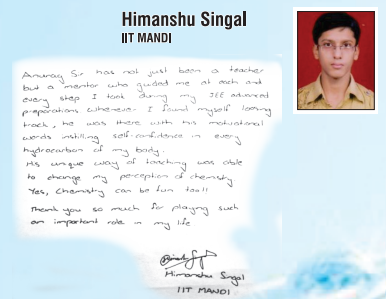 Himanshu Singal
IIT MANDI
Anurag Sir has not just been a teacher
but a mentor who guided me at each and
every step I took during my JEE advanced
preparations whenever I found myself losing
track, he was there with his motivational
words instilling self-confidence in every
hydrocarbon of my body.
His unique way of teaching was able
to change my perception of chemistry
Yes, Chemistry can be fun too!!
Thank you so much for playing such
an important role in my life
Himanshu Singal
IIT MANDI